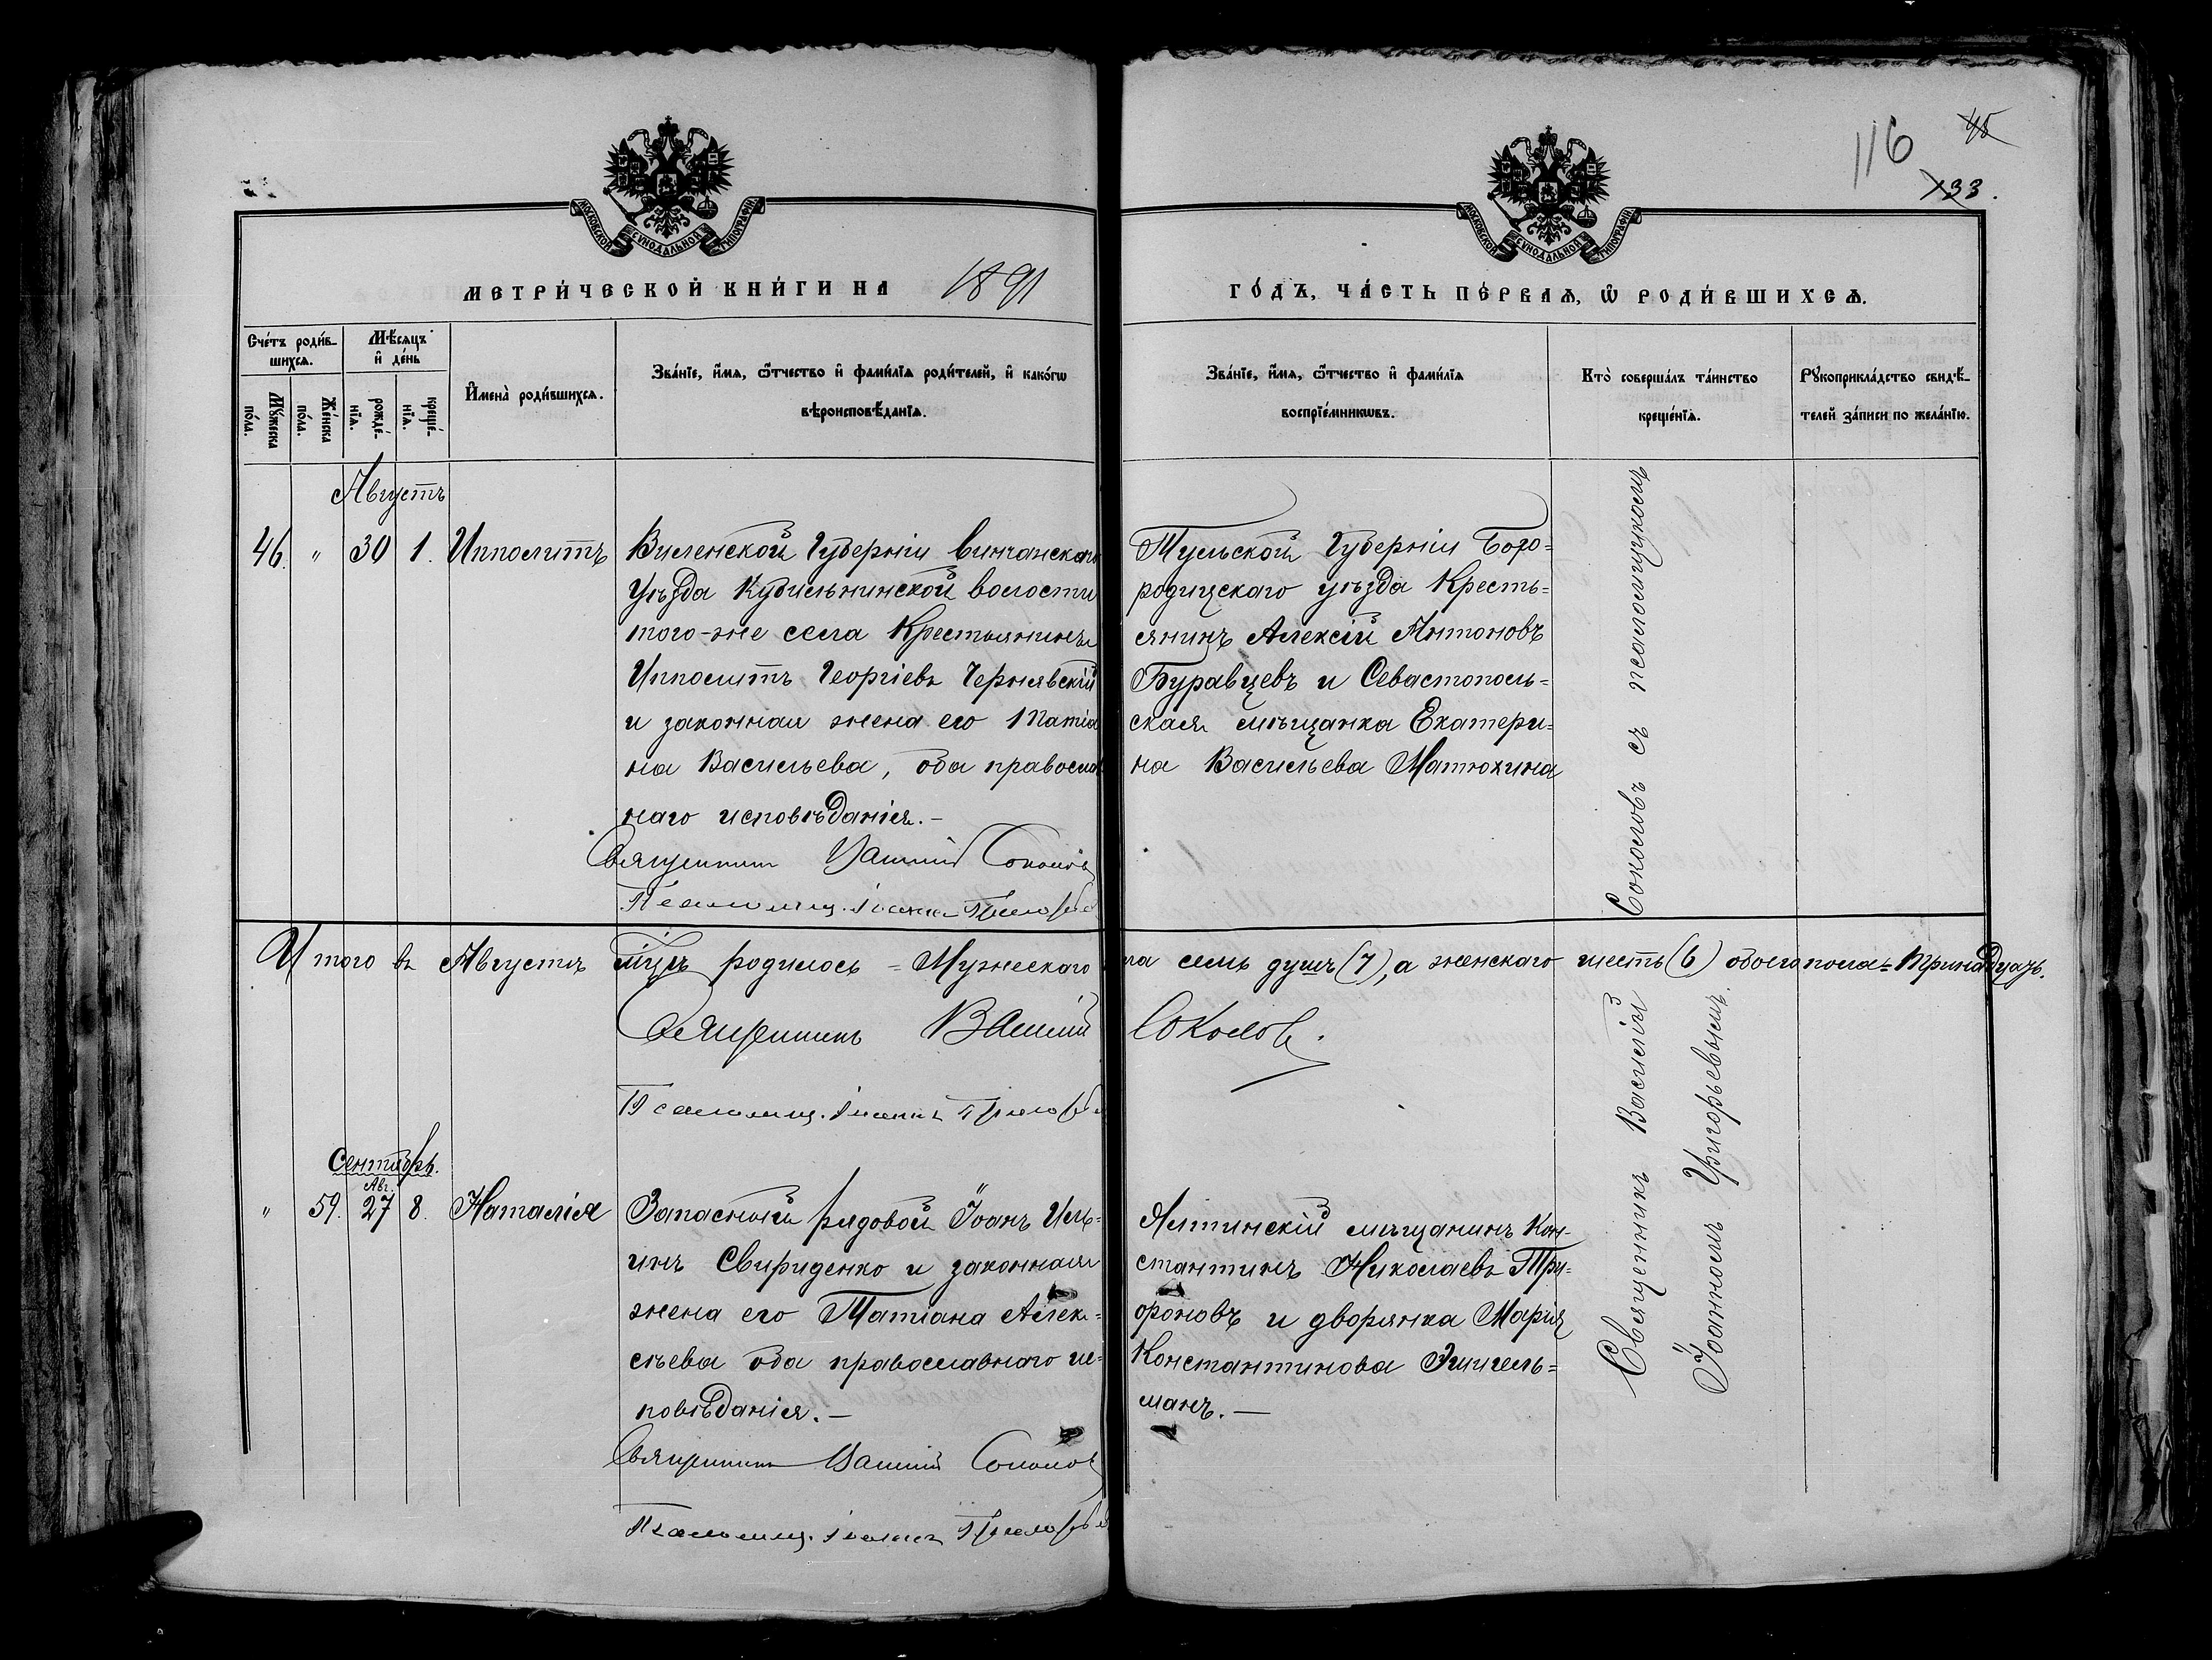 116
45
133.
МОСКОВСКОЙ СѴНОДАЛЬНОЙ ТИПОГРАФІИ
МОСКОВСКОЙ СѴНОДАЛЬНОЙ ТИПОГРАФІИ
МЕТРИ́ЧЕСКОЙ КНИ́ГИ НА 1891
ГО́ДЪ, ЧА́СТЬ ПЕ́РВАѦ, Ѡ҆ РОДИ́ВШИХСѦ.
Сче́тъ роди́в-
шихсѧ.
Мѣ́сѧцъ
и҆ де́нь
Мꙋ́жеска
по́ла.
Же́нска
по́ла.
рожде́-
нїѧ.
креще́-
нїѧ.
И҆мена̀ роди́вшихсѧ.
Зва́нїе, и҆́мѧ, ѻ҆́тчество и҆ фами́лїѧ роди́телей, и҆ како́гѡ
вѣроисповѣ́данїѧ.
Зва́нїе, и҆́мѧ, ѻ҆́тчество и҆ фами́лїѧ
воспрїе́мникѡвъ.
Кто̀ соверша́лъ та́инство
креще́нїѧ.
Рꙋкоприкла́дство свидѣ́-
телей за́писи по жела́нїю.
Августъ
46. " 30 1. Ипполитъ
Виленской Губерніи
Уѣзда волости
того-же села Крестьянинъ
Ипполитъ Георгіевъ Чернявскій
и законная жена его Татіа
на Васильева, оба православ
наго исповѣданія.-
Священникъ Василій Соколовъ
Псаломщ. Іоаннъ
Тульской Губерніи Бого=
родицскаго уѣзда Кресть=
янинъ Алексій Антоновъ
Буравцевъ и Севастополь=
ская мѣщанка Екатери=
на Васильева Матюхина
Итого въ Августѣ м-цѣ родилось = Мужескаго
па семь душъ (7), а женскаго шесть (6) обоего пола = тринадцать.
Священникъ Василій
Соколовъ.
Псаломщ. Іоаннъ
Сентябрь.
Авг.
" 59. 27 8. Наталія
Запасный рядовой Іоанъ Иль=
инъ Свириденко и законная
жена его Татіана Алек=
сѣева оба православнаго ис=
повѣданія.—
Священникъ Василій Соколовъ
Псаломщ. Іоаннъ
Ялтинскій мѣщанинъ Кон-
стантинъ Николаевъ Три=
фоновъ и дворянка Марія
Константинова Эшигель=
манъ.—
Священникъ Василій Соколовъ съ псаломщикомъ
Іоанномъ Григорьевымъ.